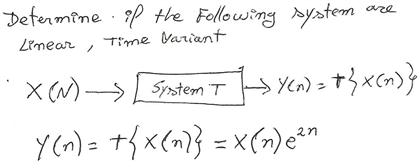 Determine . if the Following system are
Linear , Time Variant
X(N) → System T → Y(n) = T{X(n)}
Y(n) = T{X(n)} = X(n)e²ⁿ